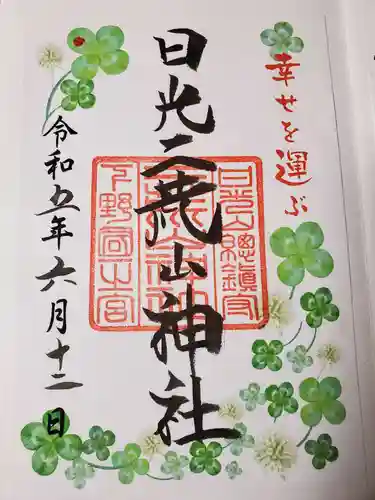 幸せを運ぶ
日光二荒山神社
令和五年六月十二日
日光山總鎮守
下野國一之宮